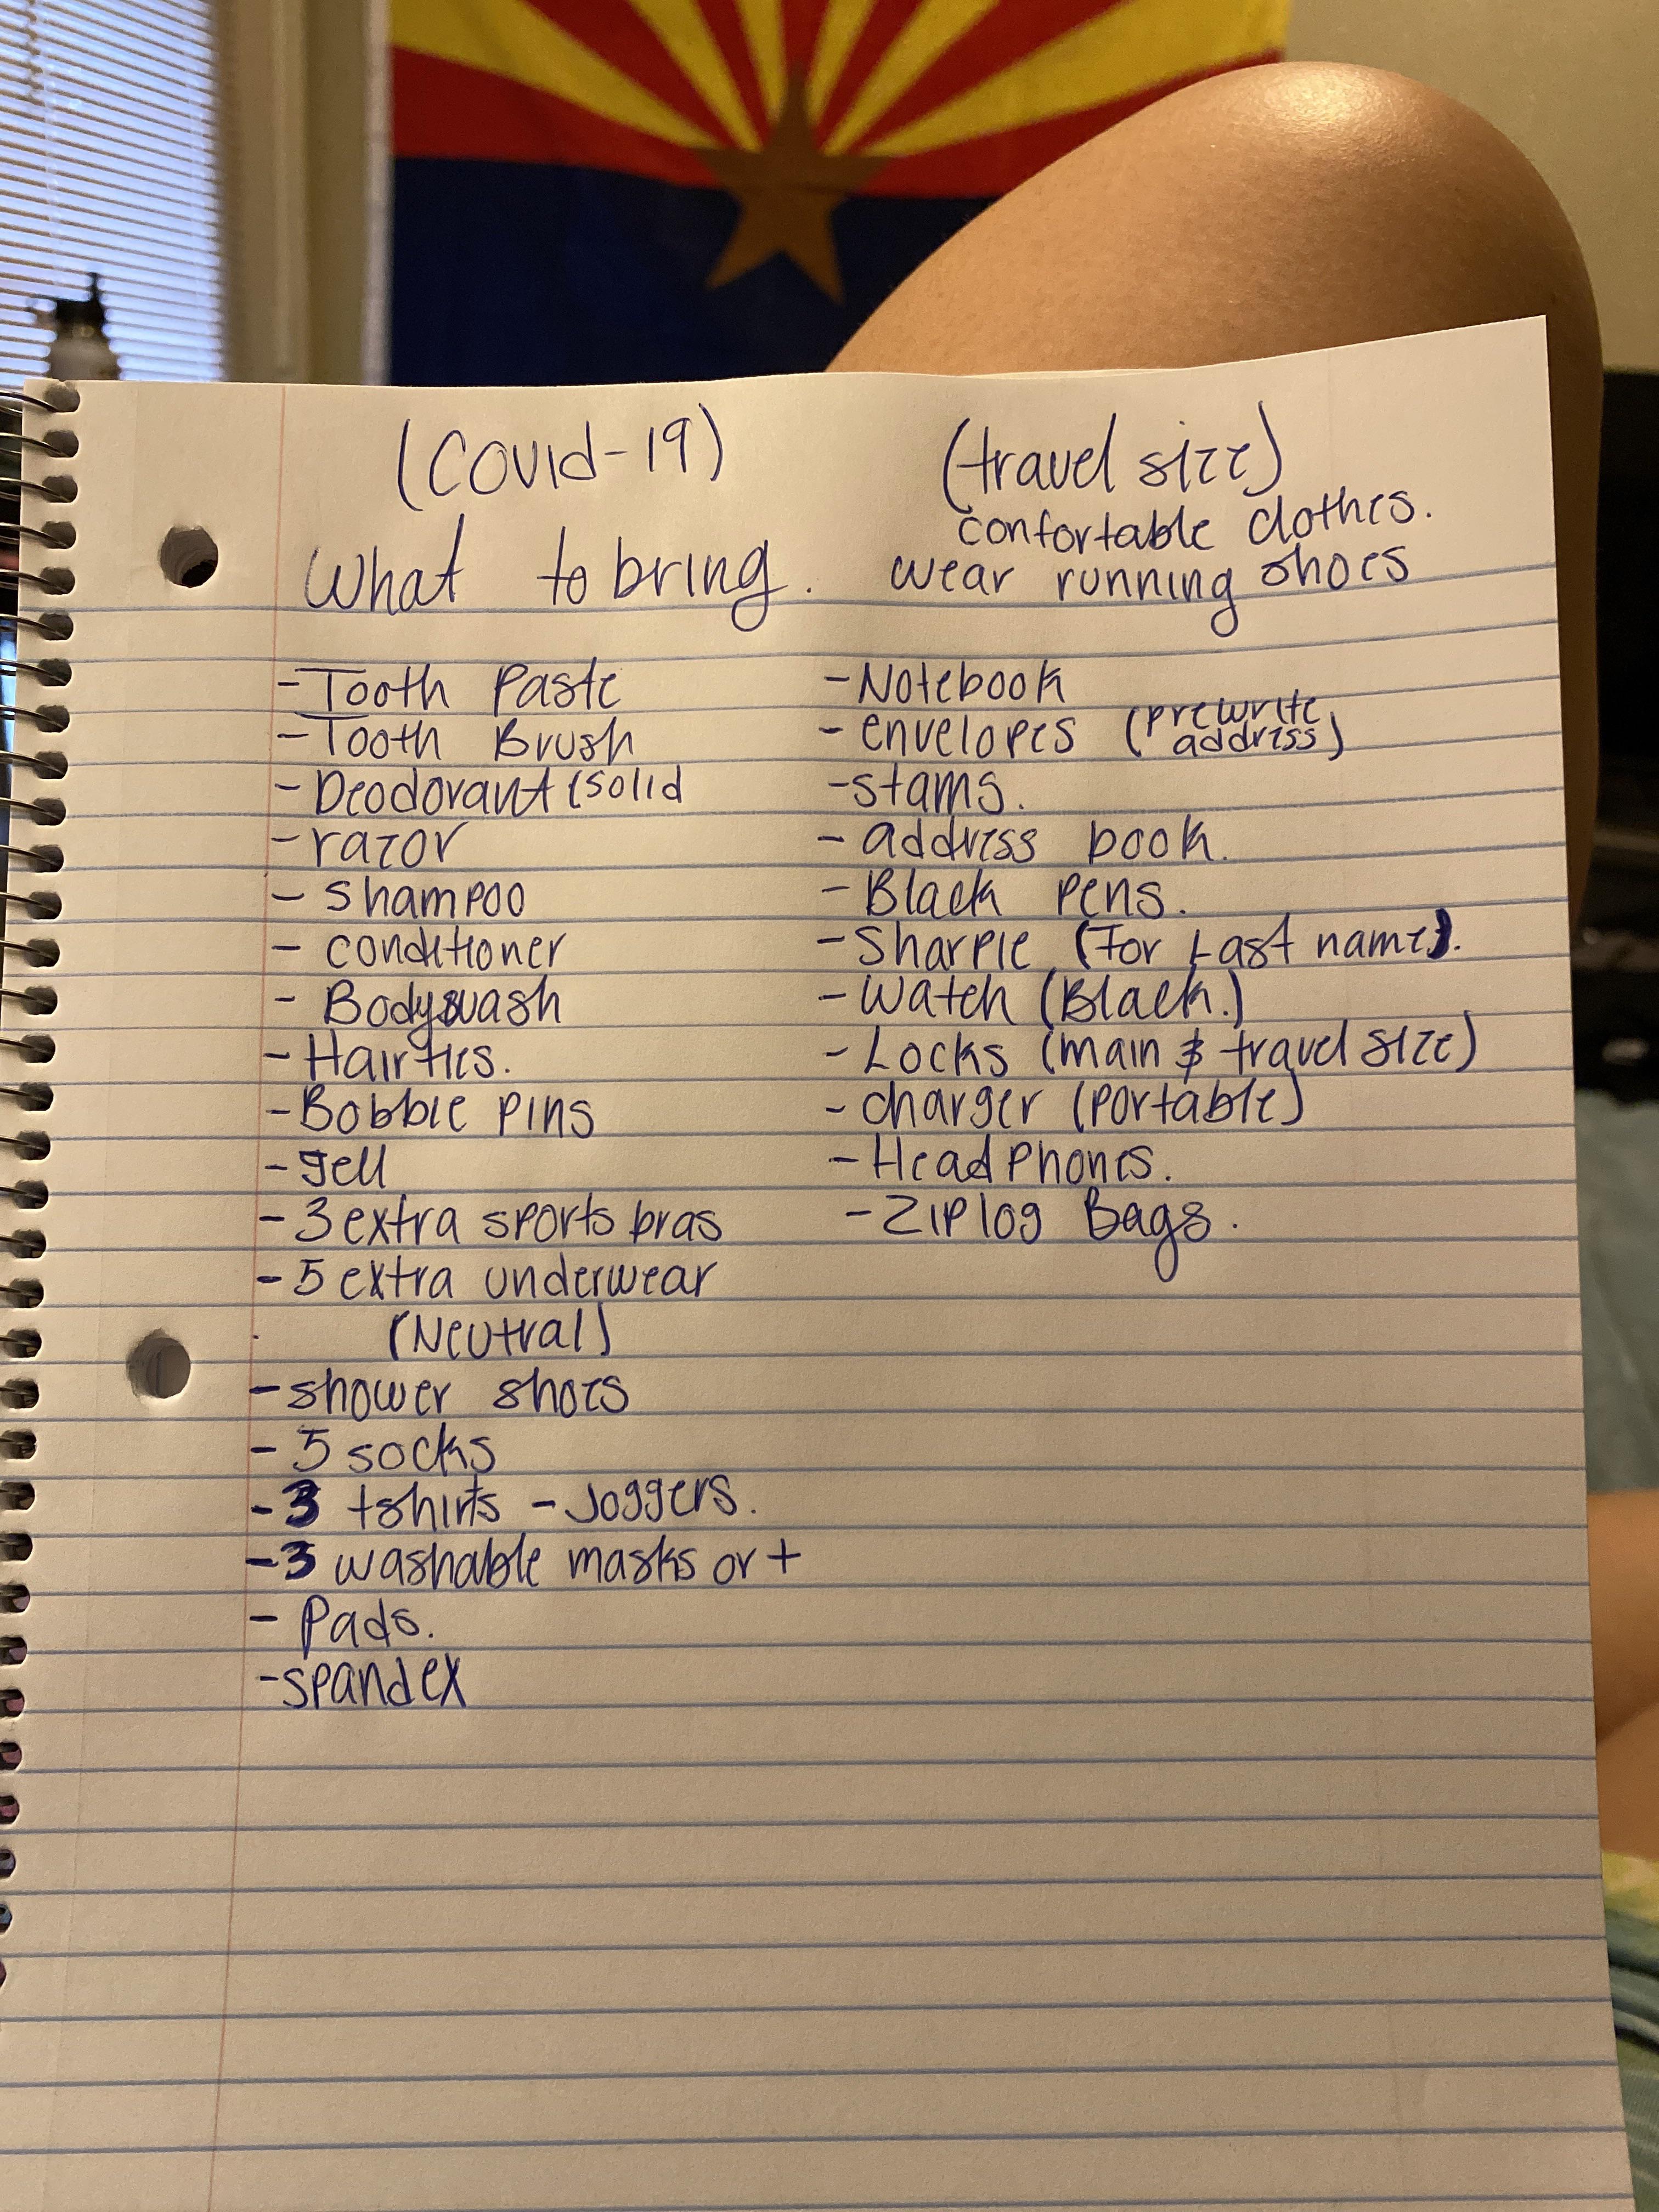 (Covid-19)
What to bring.
- Tooth Paste
- Tooth Brush
- Deodorant (solid
- razor
- shampoo
- conditioner
- Bodywash
- Hair ties.
- Bobbie pins
- gell
- 3 extra sports bras
- 5 extra underwear
(Neutral)
- shower shoes
- 5 socks
- 3 tshirts - Joggers.
- 3 washable masks or +
- Pads.
- spandex
(travel size)
confortable clothes.
wear running shoes
- Notebook
- envelopes (prewrite
address)
- stams.
- address book.
- Black pens.
- Sharpie (For Last name).
- Watch (Black.)
- Locks (main & travel size)
- charger (portable)
- Headphones.
- Ziplog Bags.